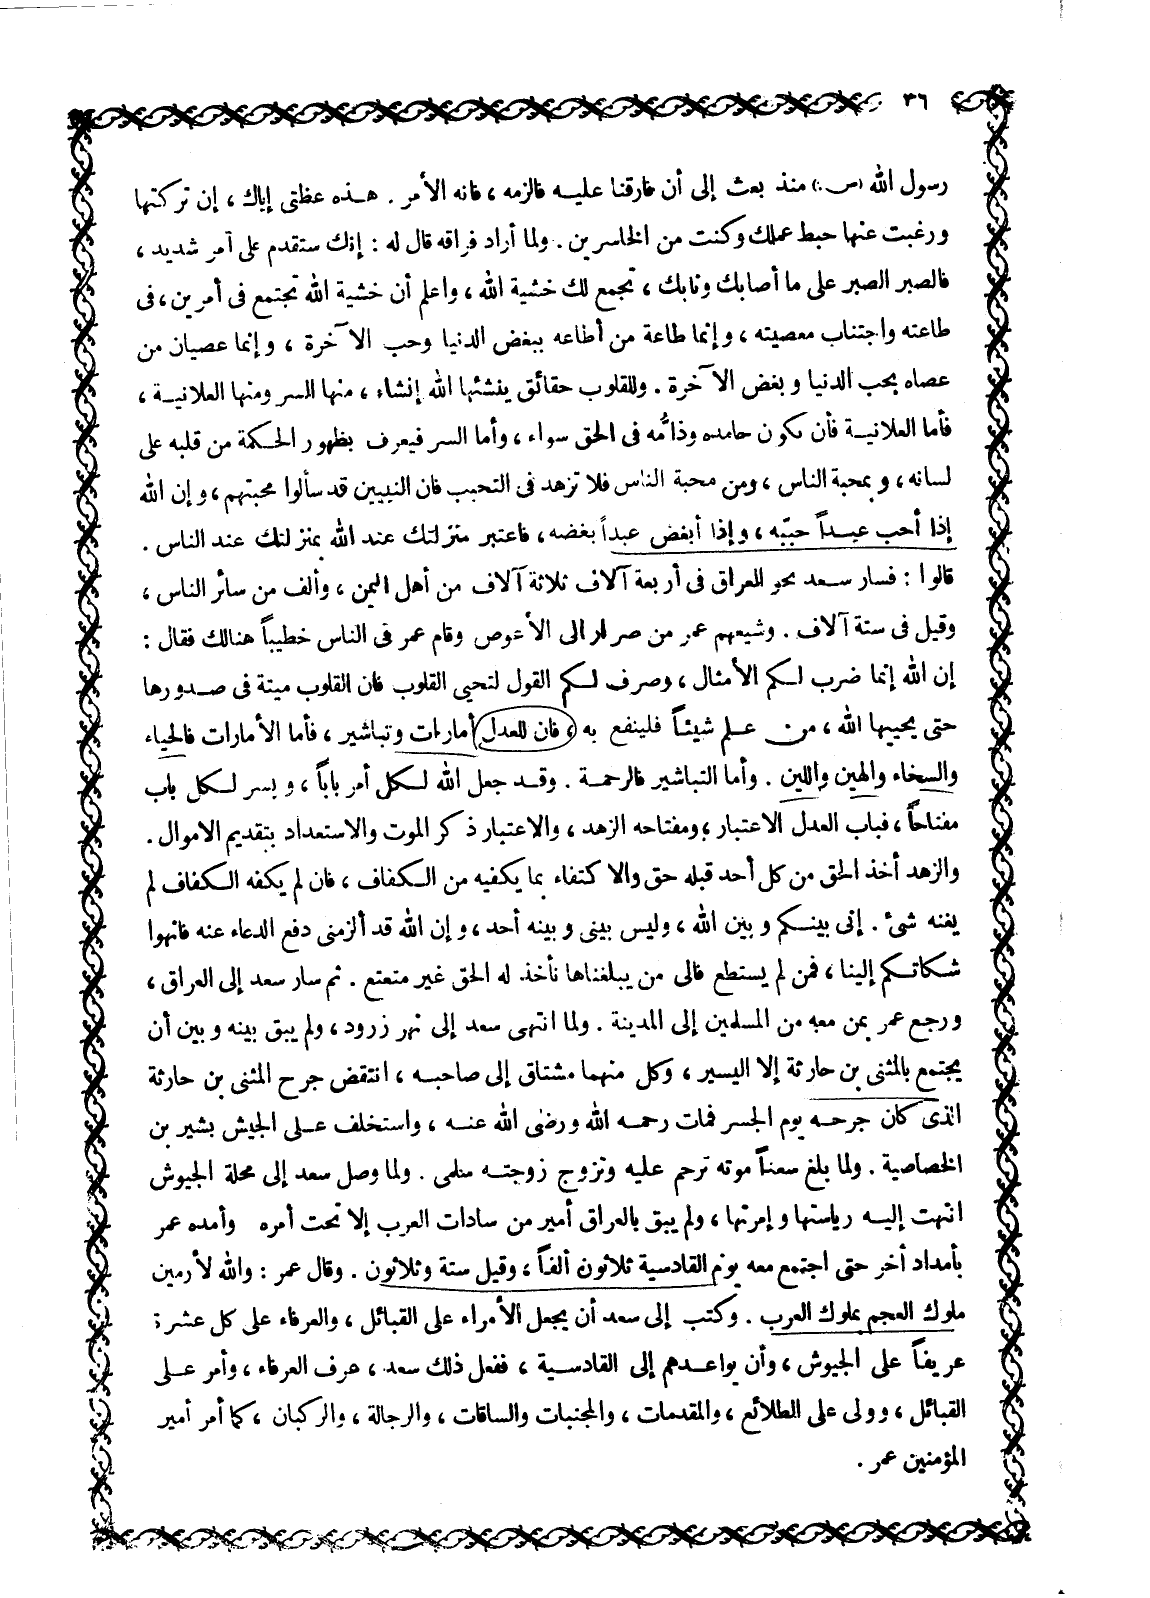 ٣٦
رسول الله (ص) منذ بعث إلى أن فارقنا عليه فالزمه ، فانه الأمر . هذه عظتى إياك ، إن تركتها
ورغبت عنها حبط عملك وكنت من الخاسرين . ولما أراد فراقه قال له : إنك ستقدم على أمر شديد ،
فالصبر الصبر على ما أصابك ونابك ، تجمع لك خشية الله ، واعلم أن خشية الله تجتمع فى أمرين ، فى
طاعته واجتناب معصيته ، وإنما طاعة من أطاعه ببغض الدنيا وحب الآخرة ، وإنما عصيان من
عصاه بحب الدنيا وبغض الآخرة . وللقلوب حقائق ينشئها الله إنشاء ، منها السر ومنها العلانية ،
فأما العلانية فأن يكون حامده وذامُّه فى الحق سواء ، وأما السر فيعرف بظهور الحكمة من قلبه على
لسانه ، وبمحبة الناس ، ومن محبة الناس فلا تزهد فى التحبب فان النبيين قد سألوا محبتهم ، وإن الله
إذا أحب عبداً حبّبه ، وإذا أبغض عبداً بغضه ، فاعتبر منزلتك عند الله بمنزلتك عند الناس .
قالوا : فسار سعد نحو العراق فى أربعة آلاف ثلاثة آلاف من أهل اليمن ، وألف من سائر الناس ،
وقيل فى ستة آلاف . وشيعهم عمر من صرار إلى الأعوص وقام عمر فى الناس خطيباً هنالك فقال :
إن الله إنما ضرب لكم الأمثال ، وصرف لكم القول لتحيى القلوب فان القلوب ميتة فى صدورها
حتى يحييها الله ، من علم شيئاً فلينفع به ، فان للعدل أمارات وتباشير ، فأما الأمارات فالحياء
والسخاء والهين واللين . وأما التباشير فالرحمة . وقد جعل الله لكل أمر باباً ، ويسر لكل باب
مفتاحاً ، فباب العدل الاعتبار ، ومفتاحه الزهد ، والاعتبار ذكر الموت والاستعداد بتقديم الاموال .
والزهد أخذ الحق من كل أحد قبله حق والاكتفاء بما يكفيه من الكفاف ، فان لم يكفه الكفاف لم
يغنه شئ . إنى بينكم وبين الله ، وليس بينى وبينه أحد ، وإن الله قد ألزمنى دفع الدعاء عنه فانهوا
شكاتكم إلينا ، فمن لم يستطع فالى من يبلغناها نأخذ له الحق غير متعتع . ثم سار سعد إلى العراق ،
ورجع عمر بمن معه من المسلمين إلى المدينة . ولما انتهى سعد إلى نهر زرود ، ولم يبق بينه وبين أن
يجتمع بالمثنى بن حارثة إلا اليسير ، وكل منهما مشتاق إلى صاحبه ، انتقض جرح المثنى بن حارثة
الذى كان جرحه يوم الجسر فمات رحمه الله ورضى الله عنه ، واستخلف على الجيش بشير بن
الخصاصية . ولما بلغ سعداً موته ترحم عليه وتزوج زوجته سلمى . ولما وصل سعد إلى محلة الجيوش
انتهت إليه رياستها وإمرتها ، ولم يبق بالعراق أمير من سادات العرب إلا تحت أمره وأمده عمر
بأمداد أخر حتى اجتمع معه يوم القادسية ثلاثون ألفاً ، وقيل ستة وثلاثون . وقال عمر : والله لأرمين
ملوك العجم بملوك العرب . وكتب إلى سعد أن يجعل الأمراء على القبائل ، والعرفاء على كل عشرة
عريفاً على الجيوش ، وأن يواعدهم إلى القادسية ، ففعل ذلك سعد ، عرف العرفاء ، وأمر على
القبائل ، وولى على الطلائع ، والمقدمات ، والمجنبات والساقات ، والرجالة ، والركبان ، كما أمر أمير
المؤمنين عمر .